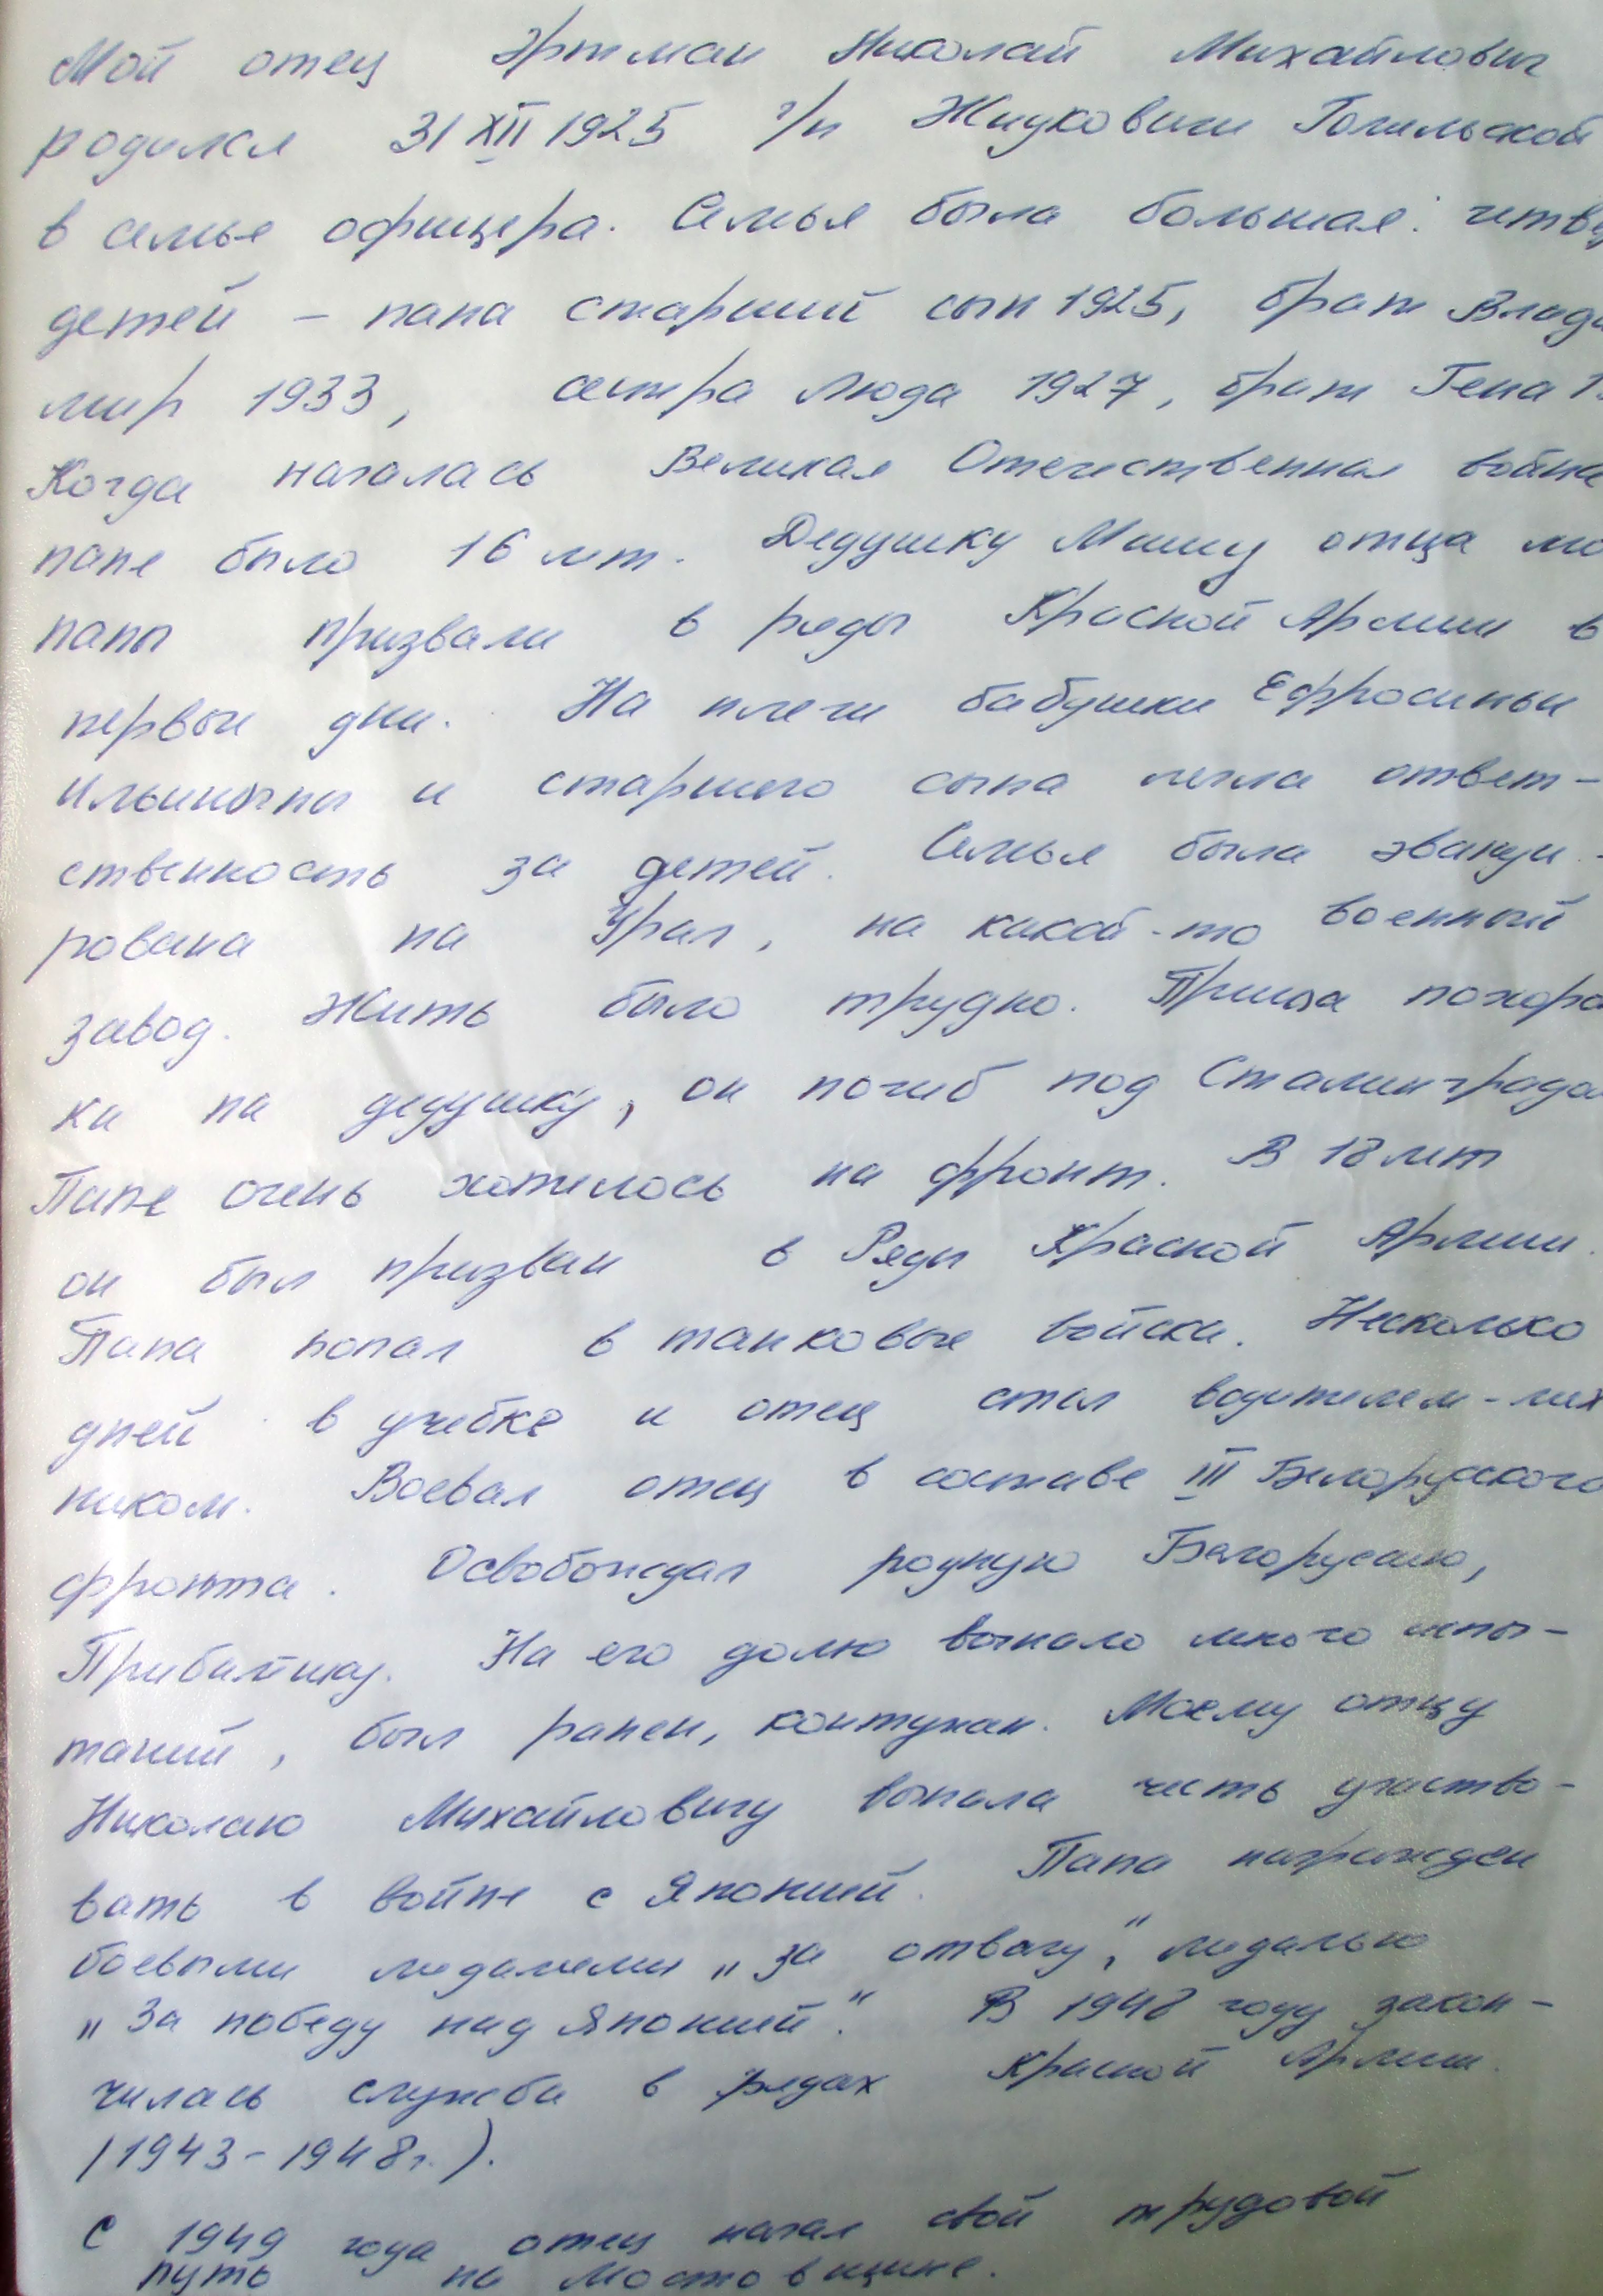 Мой отец Эртман Николай Михайлович
родился 31 XII 1925 г/п Житковичи Гомельской
в семье офицера. Семья была большая: четве
детей – папа старший сын 1925, брат Влади
мир 1933, сестра Люда 1927, брат Гена
Когда началась Великая Отечественная война
папе было 16 лет. Дедушку Мишу отца мо
папы призвали в ряды Красной Армии в
первые дни. На плечи бабушки Ефросиньи
Ильиничны и старшего сына легла ответ-
ственность за детей. Семья была эвакуи-
рована на Урал, на какой-то военный
завод. Жить было трудно. Пришла похоро
ка на дедушку, он погиб под Сталинградо
Папе очень хотелось на фронт. В 18 лет
он был призван в Ряды Красной Армии.
Папа попал в танковые войска. Несколько
дней в учебке и отец стал водителем-мех
ником. Воевал отец в составе III Белорусского
фронта. Освобождал родную Белоруссию,
Прибалтику. На его долю выпало много испы-
таний, был ранен, контужен. Моему отцу
Николаю Михайловичу выпала честь участво-
вать в войне с Японией. Папа награжден
боевыми медалями „За отвагу“, медалью
„За победу над Японией“. В 1948 году закон-
чилась служба в рядах Красной Армии.
(1943-1948г.).
С 1949 года отец начал свой трудовой
путь на Мостовщине.